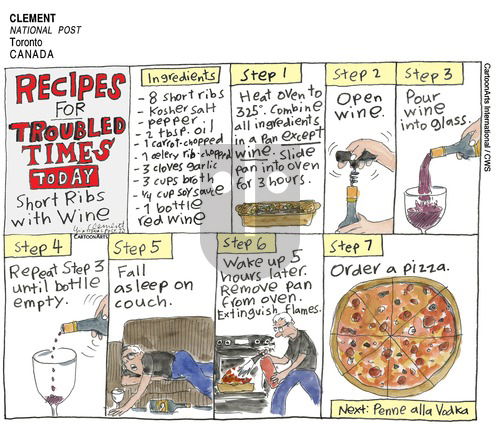 CLEMENT
NATIONAL POST
Toronto
CANADA
RECIPES
FOR
TROUBLED
TIMES
TODAY
Short Ribs
with Wine
CARTOONARTS
Ingredients
- 8 short ribs
- Kosher salt
- pepper
- 2 tbsp. oil
- 1 carrot-chopped
- 1 celery rib-chopped
- 3 cloves garlic
- 3 cups broth
- 1/4 cup soy sauce
- 1 bottle
red wine
Step 1
Heat oven to
325°. Combine
all ingredients
in a pan except
wine. Slide
pan into oven
for 3 hours.
Step 2
Open
wine.
Step 3
Pour
wine
into glass.
CartoonArts International / CWS
Step 4
Repeat Step 3
until bottle
empty.
Step 5
Fall
asleep on
couch.
Step 6
Wake up 5
hours later.
Remove pan
from oven.
Extinguish flames.
Step 7
Order a pizza.
Next: Penne alla Vodka